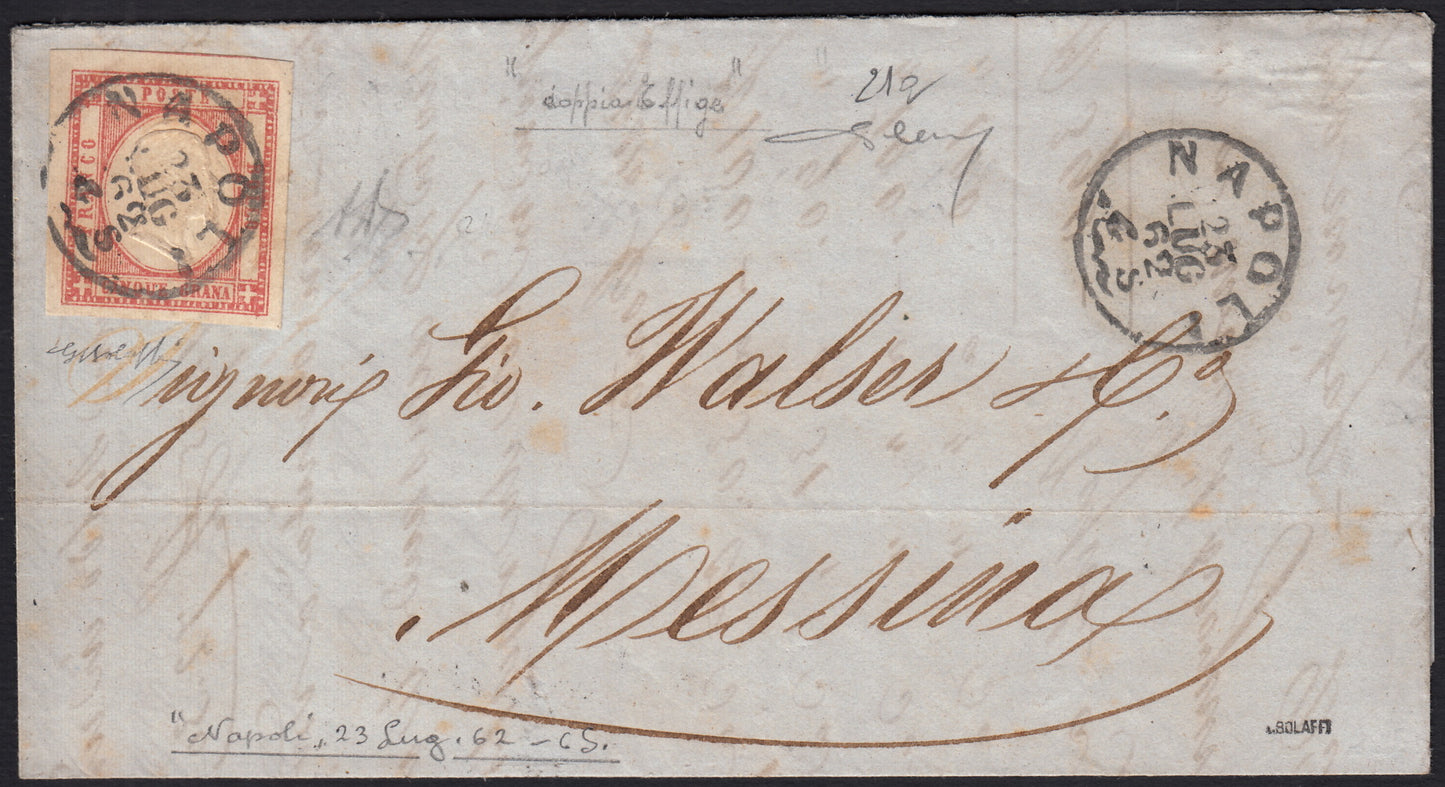 POSTE
FRANCO
CINQUE GRANA
NAPOLI
23
LUG
62
6 S
"doppia Effige"
21a
NAPOLI
23
LUG
62
6 S
Signori Gio. Walser & Cº
Messina
"Napoli, 23 Lug. 62 - 6S.
A.BOLAFFI